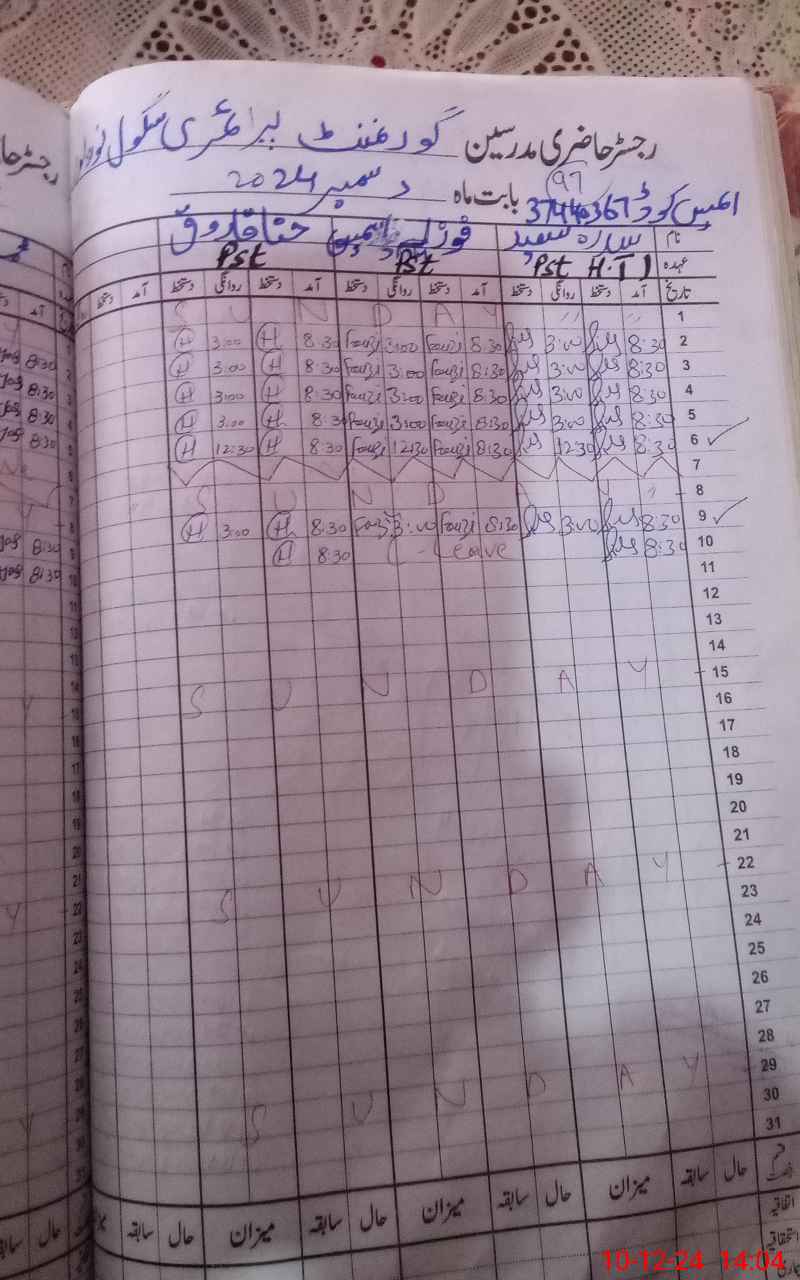 رجسٹر حاضری مدرسین گورنمنٹ پرائمری سکول
97
ایمیس کوڈ 37440367 بابت ماہ دسمبر 2024
نام سارہ سعید فوزیہ یاسمین حنا فاروق
عہدہ Pst H.T Pst Pst
تاریخ آمد دستخط روانگی دستخط آمد دستخط روانگی دستخط آمد دستخط روانگی دستخط آمد دستخط
1 S U N D A Y
2 8:30 3:00 8:30 Fouzi 3:00 Fouzi 8:30 H 3:00 H
3 8:30 3:00 8:30 Fouzi 3:00 Fouzi 8:30 H 3:00 H
4 8:30 3:00 8:30 Fouzi 3:00 Fouzi 8:30 H 3:00 H
5 8:30 3:00 8:30 Fouzi 3:00 Fouzi 8:30 H 3:00 H
6 8:30 12:30 8:30 Fouzi 12:30 Fouzi 8:30 H 12:30 H
7
8 S U N D
9 8:30 3:00 8:30 Fouzi 3:00 Fouzi 8:30 H 3:00 H
10 8:30 Leave 8:30 H
11
12
13
14
15 S U N D A Y
16
17
18
19
20
21
22 S U N D A Y
23
24
25
26
27
28
29 S U N D A Y
30
31
حال سابقہ میزان حال سابقہ میزان حال سابقہ میزان حال سابقہ
اتفاقیہ
استحقاقیہ
10-12-24 14:04